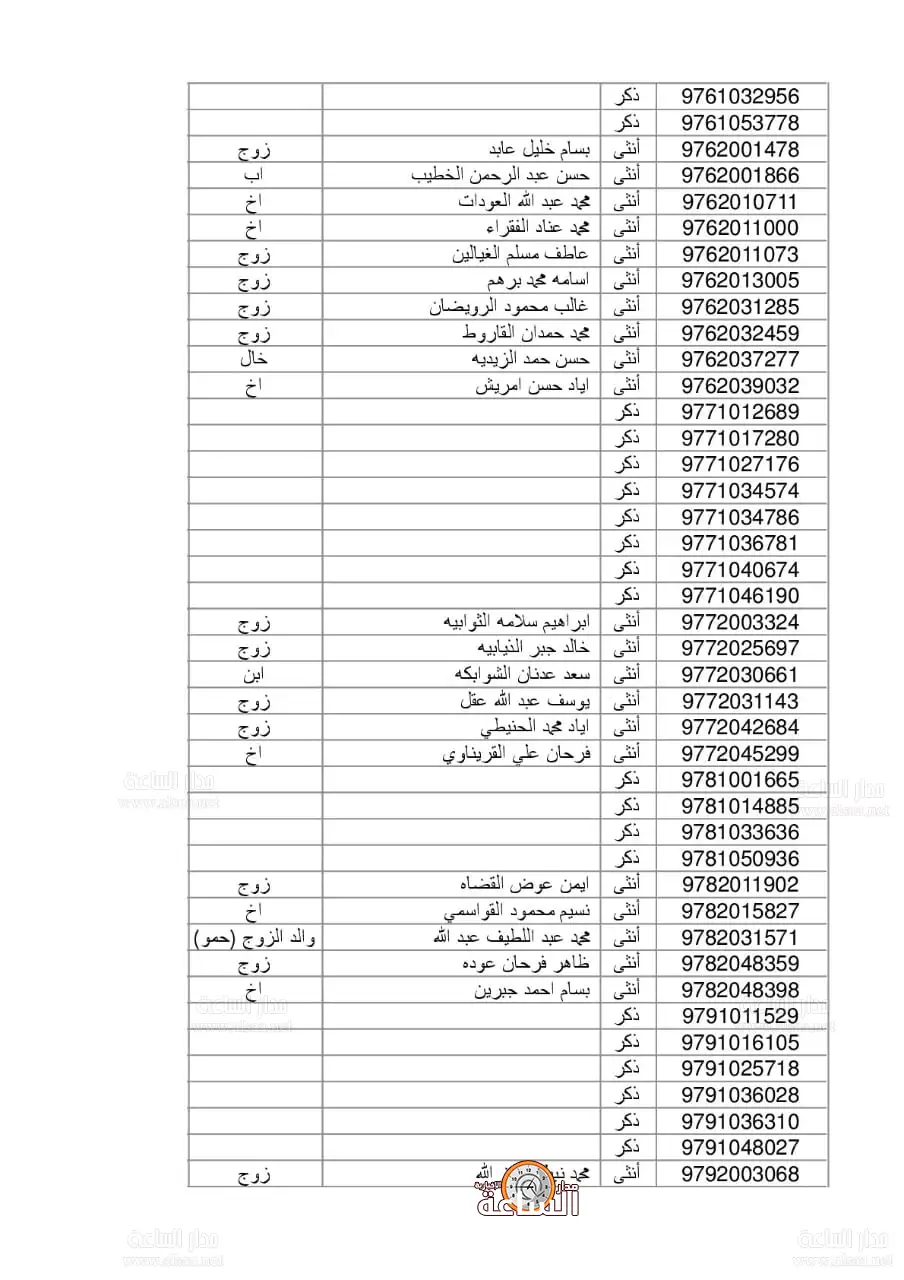 9761032956 ذكر
9761053778 ذكر
9762001478 أنثى بسام خليل عابد زوج
9762001866 أنثى حسن عبد الرحمن الخطيب اب
9762010711 أنثى محمد عبد الله العودات اخ
9762011000 أنثى محمد عناد الفقراء اخ
9762011073 أنثى عاطف مسلم الغيالين زوج
9762013005 أنثى اسامه محمد برهم زوج
9762031285 أنثى غالب محمود الرويضان زوج
9762032459 أنثى محمد حمدان القاروط زوج
9762037277 أنثى حسن حمد الزيديه خال
9762039032 أنثى اياد حسن امريش اخ
9771012689 ذكر
9771017280 ذكر
9771027176 ذكر
9771034574 ذكر
9771034786 ذكر
9771036781 ذكر
9771040674 ذكر
9771046190 ذكر
9772003324 أنثى ابراهيم سلامه الثوابيه زوج
9772025697 أنثى خالد جبر الذيابيه زوج
9772030661 أنثى سعد عدنان الشوابكه ابن
9772031143 أنثى يوسف عبد الله عقل زوج
9772042684 أنثى اياد محمد الحنيطي زوج
9772045299 أنثى فرحان علي القريناوي اخ
9781001665 ذكر
9781014885 ذكر
9781033636 ذكر
9781050936 ذكر
9782011902 أنثى ايمن عوض القضاه زوج
9782015827 أنثى نسيم محمود القواسمي اخ
9782031571 أنثى محمد عبد اللطيف عبد الله والد الزوج (حمو)
9782048359 أنثى ظاهر فرحان عوده زوج
9782048398 أنثى بسام احمد جبرين اخ
9791011529 ذكر
9791016105 ذكر
9791025718 ذكر
9791036028 ذكر
9791036310 ذكر
9791048027 ذكر
9792003068 أنثى محمد الله زوج
مدار الساعة الإخبارية
مدار الساعة
www.alsaa.net
مدار الساعة
www.alsaa.net
مدار الساعة
www.alsaa.net
مدار الساعة
www.alsaa.net
مدار الساعة
www.alsaa.net
مدار الساعة
www.alsaa.net